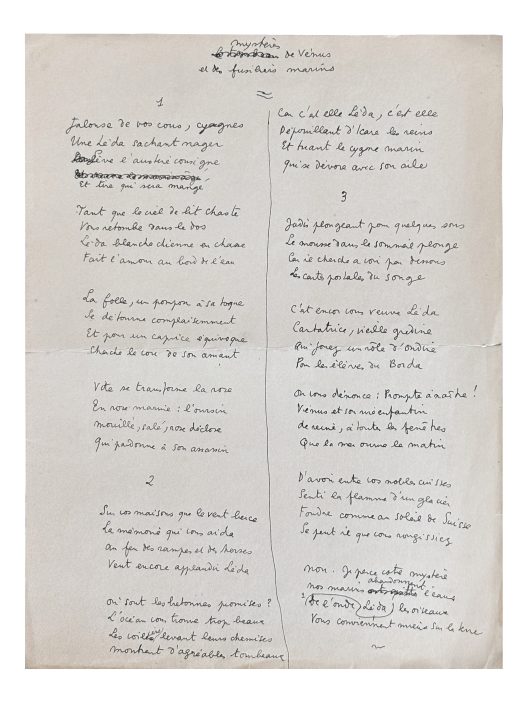 mystères
de Vénus
et des fusiliers marins
1
Jalouse de vos cous, cygnes
Une Léda sachant nager
Élève l'austère consigne
Et tire qui sera mangé
Tant que le ciel de lit chaste
Vous retombe dans le dos
Léda blanche chienne en chasse
Fait l'amour au bord de l'eau
La folle, un pompon à sa toque
Se détourne complaisamment
Et pour un caprice équivoque
Cherche le cou de son amant
Vite se transforme la rose
En rose marine : l'oursin
mouillé, salé, rose déclose
Qui pardonne à son assassin
2
Sur vos maisons que le vent berce
La mémoire qui vous aida
au feu des rampes et de herses
Veut encore applaudir Léda
Où sont les bretonnes promises ?
L'océan vous trouve trop beaux
Les voiliers levant leurs chemises
montrent d'agréables tombeaux
Car c'est elle Léda, c'est elle
Dépouillant d'Icare les reins
Et tuant le cygne marin
qui se dévore avec son aile
3
Jadis plongeant pour quelques sous
Le mousse dans le sommeil plonge
Car il cherche à voir par dessous
Les cartes postales du songe
C'est encor vous veuve Léda
Cantatrice, vieille gredine
Qui jouez un rôle d'ondine
Pour les élèves du Borda
On vous dénonce : Prompte à naître !
Vénus et son cri enfantin
de reine, à toute les fenêtres
Que la mer ouvre le matin
D'avoir entre vos nobles cuisses
Senti la flamme d'un glacier
Fondre comme au soleil de Suisse
Se peut-il que vous rougissiez
non. Je perce votre mystère
abandonnent
nos marins l'eau
(De l'onde, Léda) les oiseaux
Vous conviennent mieux sur la terre